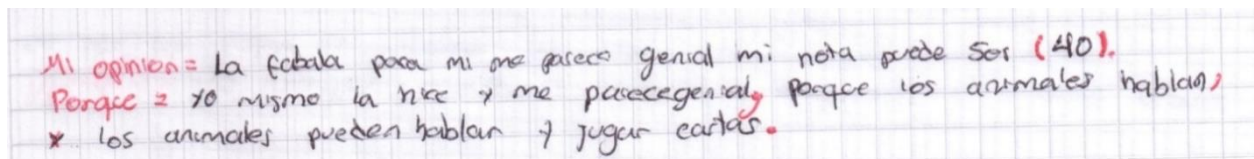 Mi opinion = La fabala para mi me parece genial mi nota puede ser (40).
Porqce = yo mismo la hice y me parecegenial, porqce los animales hablan,
x los animales pueden hablar y jugar cartas.